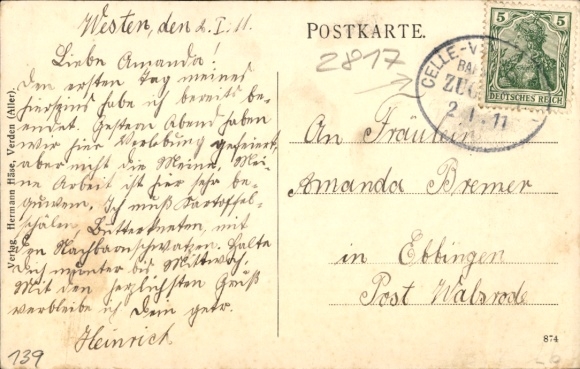 Westen, den 2. I. 11.
Liebe Amanda!
Den ersten Tag meines
Hierseins habe ich bereits be-
endet. Gestern Abend haben
wir hier Verlobung gefeiert,
aber nicht die Meine. Mei-
ne Arbeit ist hier sehr be-
quem. Ich muß Kartoffel-
schälen, Butterkneten, mit
den Nachbarn schwatzen. Halte
Dich munter bis Mittwoch.
Mit den herzlichsten Gruß
verbleibe ich Dein getr.
Heinrich
139
Verlag. Hermann Häse, Verden (Aller).
POSTKARTE.
2817
5 5
DEUTSCHES REICH
CELLE-V
BA
ZUG
2. 1. 11
An Fräulein
Amanda Bremer
in Ebbingen
Post Walsrode
874